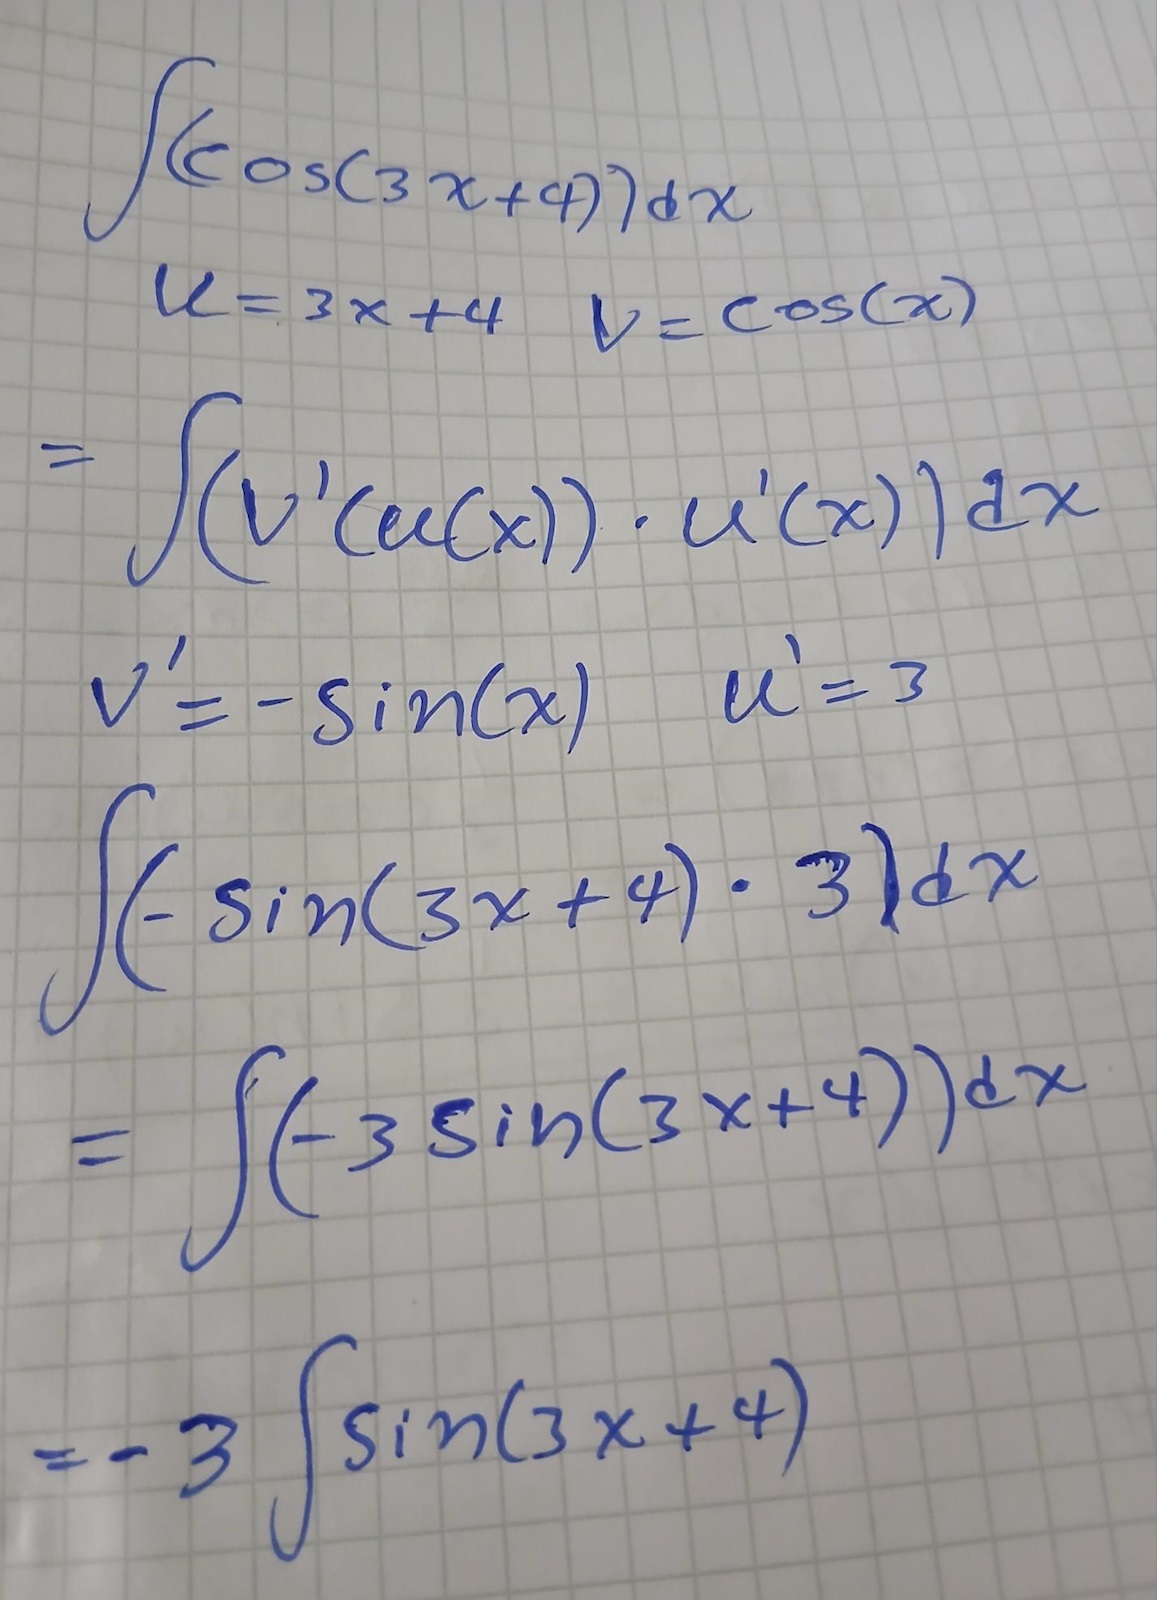 ∫(cos(3x+4))dx
u=3x+4 v=cos(x)
=∫(v'(u(x))·u'(x))dx
v'=-sin(x) u'=3
∫(-sin(3x+4)·3)dx
=∫(-3sin(3x+4))dx
=-3∫sin(3x+4)